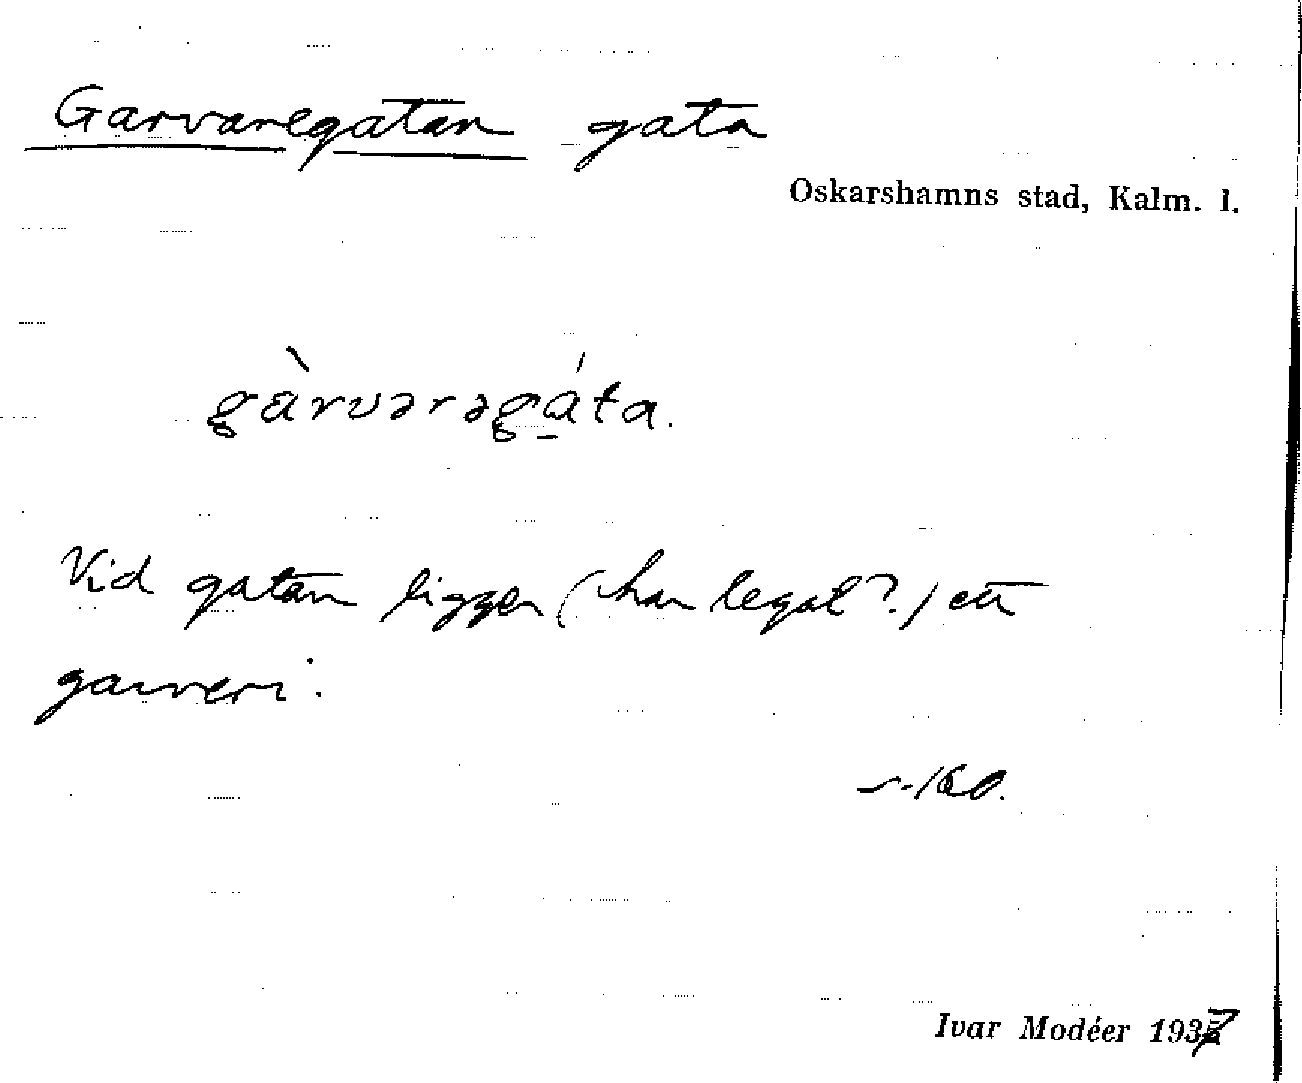 Garvaregatan gata
Oskarshamns stad, Kalm. l.
gàrvərəgáta.
Vid gatan ligger (har legat?) ett
garveri.
Ivar Modéer 1937